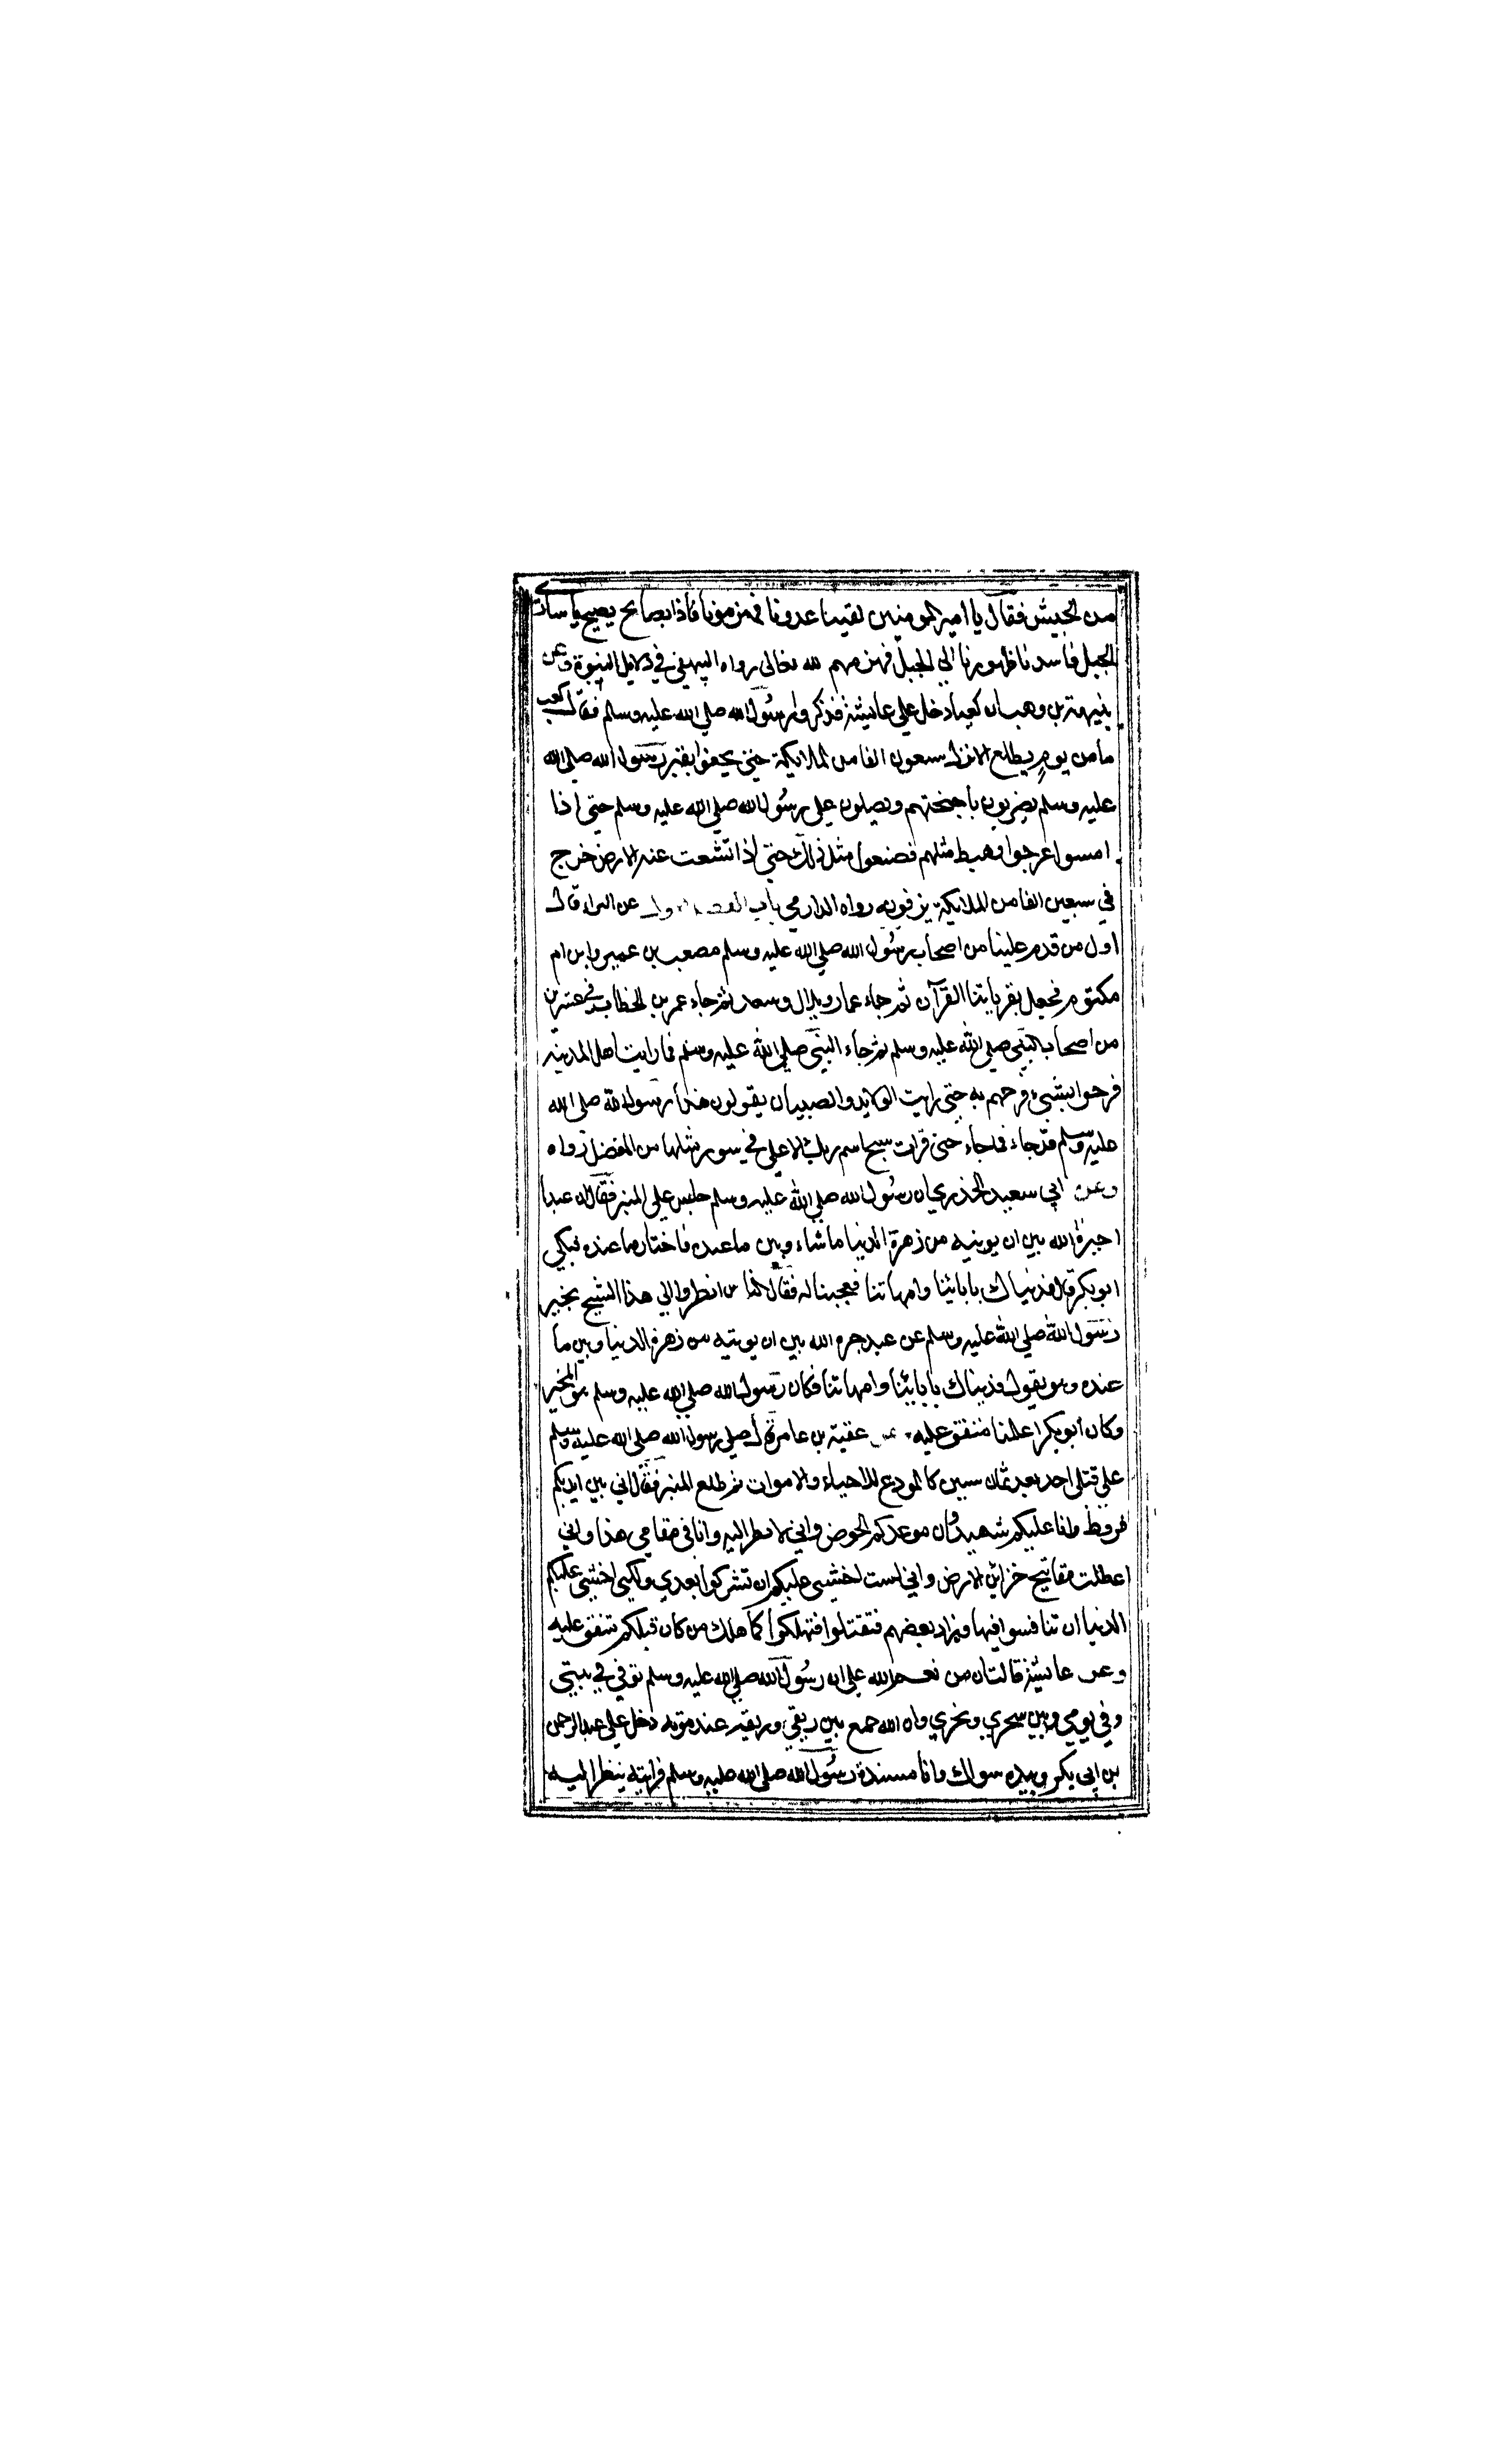 من الجيش فقال يا امير المومنين لقينا عدونا فهزمونا فاذا بصايح يصيح يا ساري
الجبل فاسندنا ظهورنا الي الجبل فهزمهم الله تعالى رواه البيهقي في دلايل النبوة وعن
نبيهة بن وهب ان كعبا دخل علي عائشة فذكروا رسول الله صلي الله عليه وسلم فقال كعب
مامن يوم يطلع الا نزل سبعون الفا من الملائكة حتى يحفوا بقبر رسول الله صلي الله
عليه وسلم يضربون باجنحتهم ويصلون علي رسول الله صلي الله عليه وسلم حتي اذا
امسوا عرجوا وهبط مثلهم فصنعوا مثل ذلك حتي اذا انشقت عنه الارض خرج
في سبعين الفا من الملايكة يزفونه رواه الدارمي باب الفصل الاول عن البراء قال
اول من قدم علينا من اصحاب رسول الله صلي الله عليه وسلم مصعب بن عمير وابن ام
مكتوم فجعلا يقرياننا القرآن ثم جاء عمار وبلال وسعد ثم جاء عمر بن الخطاب في عشرين
من اصحاب النبي صلي الله عليه وسلم ثم جاء النبي صلي الله عليه وسلم فما رايت اهل المدينة
فرحوا بشيء فرحهم به حتي رايت الولايد والصبيان يقولون هذا رسول الله صلي الله
عليه وسلم قد جاء فما جاء حتى قرات سبح اسم ربك الاعلي في سور مثلها من المفصل رواه
وعن ابي سعيد الخدري ان رسول الله صلي الله عليه وسلم جلس علي المنبر فقال ان عبدا
خيره الله بين ان يوتيه من زهرة الدنيا ماشاء وبين ماعنده فاختار ماعنده فبكي
ابوبكر قال فديناك بابائنا وامهاتنا فعجبنا له فقال الناس انظروا الي هذا الشيخ يخبر
رسول الله صلي الله عليه وسلم عن عبد خيره الله بين ان يوتيه من زهرة الدنيا وبين ما
عنده وهو يقول فديناك بابائنا وامهاتنا فكان رسول الله صلي الله عليه وسلم هو المخير
وكان ابو بكر اعلمنا متفق عليه وعن عقبة بن عامر قال صلي رسول الله صلي الله عليه وسلم
علي قتلي احد بعد ثمان سنين كالمودع للاحياء والاموات ثم طلع المنبر فقال اني بين ايديكم
فرط وانا عليكم شهيد وان موعدكم الحوض واني لانظر اليه وانا في مقامي هذا واني
اعطيت مفاتيح خزائن الارض واني لست اخشى عليكم ان تشركوا بعدي ولكني اخشي عليكم
الدنيا ان تنافسوا فيها وزاد بعضهم فتقتلوا فتهلكوا كما هلك من كان قبلكم متفق عليه
وعن عائشة قالت ان من نعم الله علي ان رسول الله صلي الله عليه وسلم توفي في بيتي
وفي يومي وبين سحري ونحري وان الله جمع بين ريقي وريقه عند موته دخل علي عبد الرحمن
بن ابي بكر وبيده سواك وانا مسندة رسول الله صلي الله عليه وسلم فرايته ينظر اليه